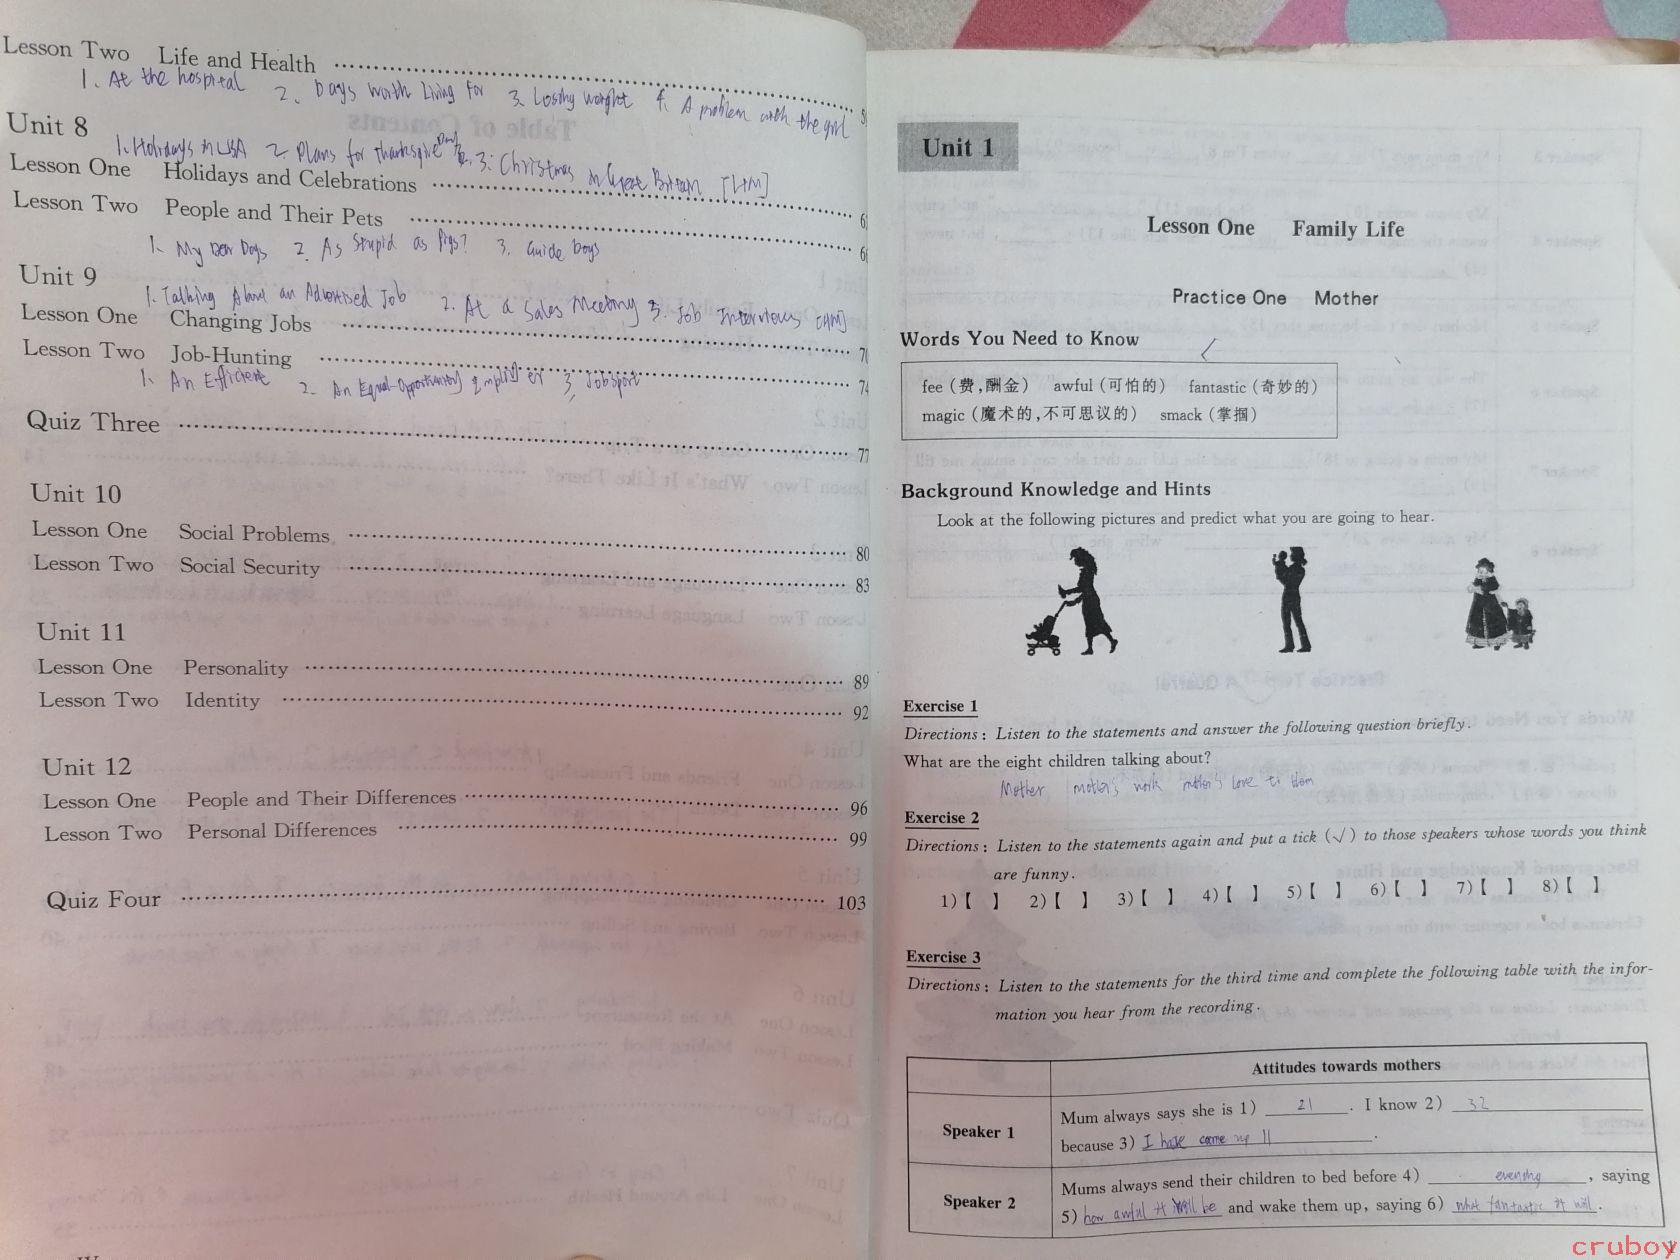 Lesson Two Life and Health 5
1. At the hospital 2. Days Worth Living For 3. Losing Weight 4. A problem with the girl
Unit 8
1. Holidays in USA 2. Plans for Thanksgive Day 3. Christmas in Great Britain
Lesson One Holidays and Celebrations 6
Lesson Two People and Their Pets 6
1. My Dear Dogs 2. As Stupid as Pigs? 3. Guide Dogs
Unit 9
1. Talking About an Advertised Job 2. At a Sales Meeting 3. Job Interviews
Lesson One Changing Jobs 70
Lesson Two Job-Hunting 74
1. An Efficient 2. An Equal-Opportunity 3. Jobsport
Quiz Three 77
Unit 10
Lesson One Social Problems 80
Lesson Two Social Security 83
Unit 11
Lesson One Personality 89
Lesson Two Identity 92
Unit 12
Lesson One People and Their Differences 96
Lesson Two Personal Differences 99
Quiz Four 103
Unit 1
Lesson One Family Life
Practice One Mother
Words You Need to Know
fee (费,酬金) awful (可怕的) fantastic (奇妙的)
magic (魔术的,不可思议的) smack (掌掴)
Background Knowledge and Hints
Look at the following pictures and predict what you are going to hear.
Exercise 1
Directions: Listen to the statements and answer the following question briefly.
What are the eight children talking about?
Mother mother's work mother's love to them
Exercise 2
Directions: Listen to the statements again and put a tick (√) to those speakers whose words you think
are funny.
1)【 】 2)【 】 3)【 】 4)【 】 5)【 】 6)【 】 7)【 】 8)【 】
Exercise 3
Directions: Listen to the statements for the third time and complete the following table with the infor-
mation you hear from the recording.
Attitudes towards mothers
Speaker 1
Mum always says she is 1) 21 . I know 2) 32
because 3) I have come up 11 .
Speaker 2
Mums always send their children to bed before 4) evening , saying
5) how awful it will be and wake them up, saying 6) what fantastic it will .
cruboy